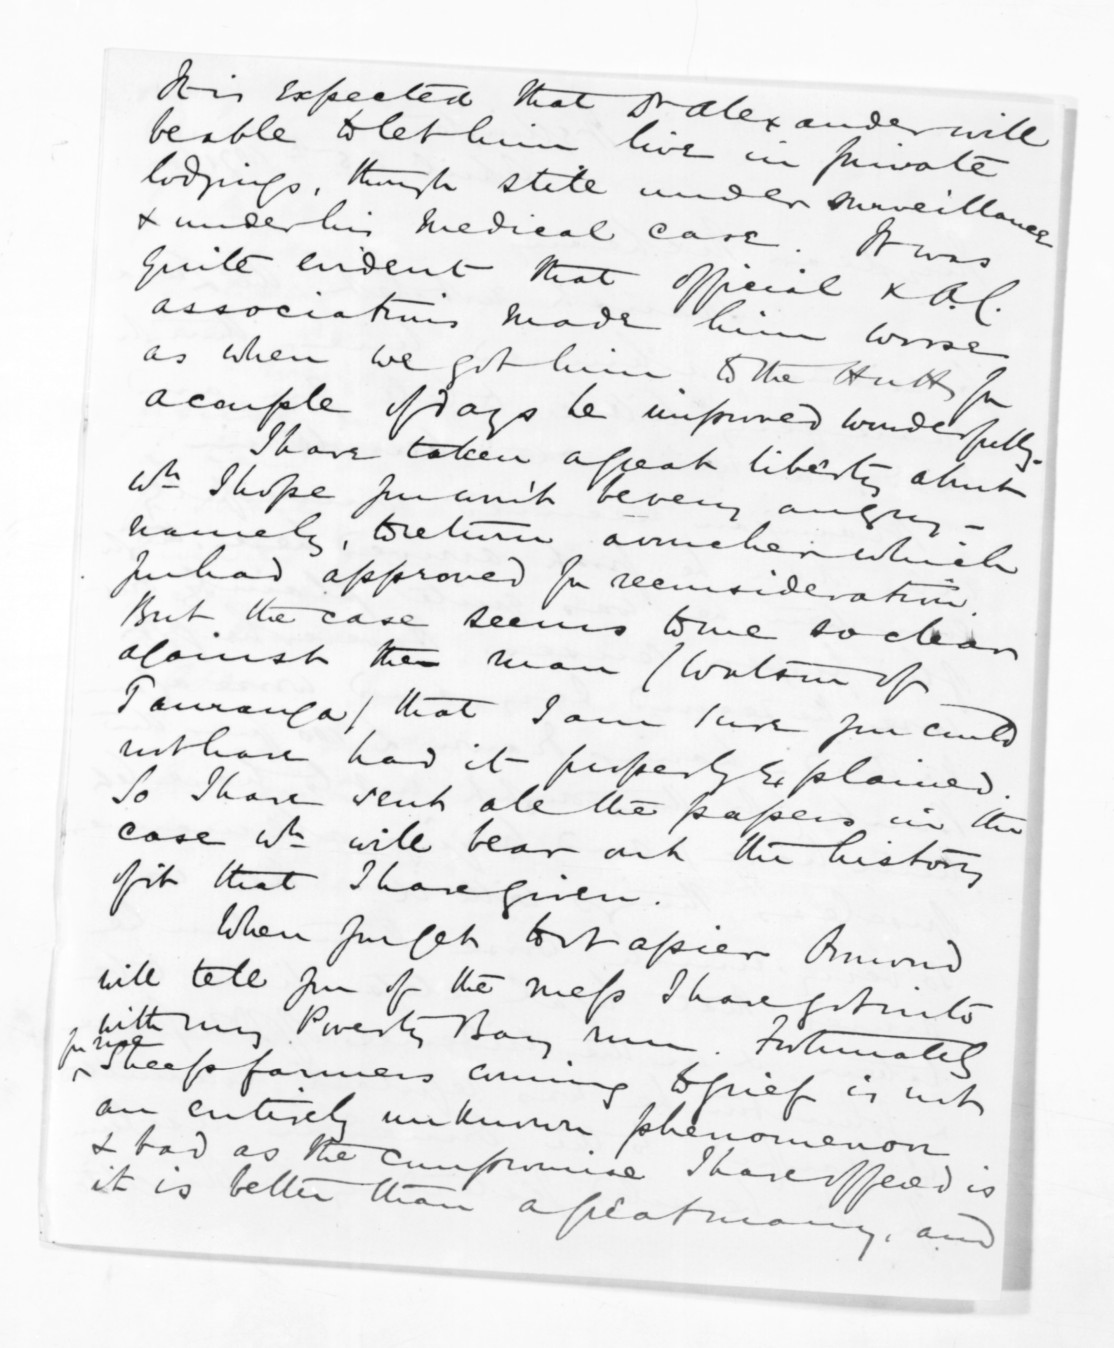 It is expected that Dr Alexander will
be able to let him live in private
lodgings, though still under surveillance
& under his medical care. It was
quite evident that official & A.C.
associations made him worse
as when we got him to the Hutt for
a couple of days he improved wonderfully.
I have taken a great liberty about
wh I hope you won't be very angry -
namely, to return a voucher which
you had approved for reconsideration.
But the case seems to me so clear
against the man (Watson of
Tauranga) that I am sure you could
not have had it properly explained.
So I have sent all the papers in the
case wh will bear out the history
of it that I have given.
When you get to Napier Ormond
will tell you of the mess I have got into
with my Poverty Bay run. Fortunately
for me
Sheepfarmers coming to grief is not
an entirely unknown phenomenon
& bad as the compromise I have offered is
it is better than a great many, and